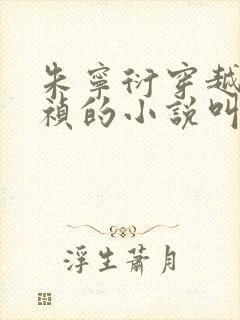 朱寧衍穿越
禎的小說叫
浮生蕭月